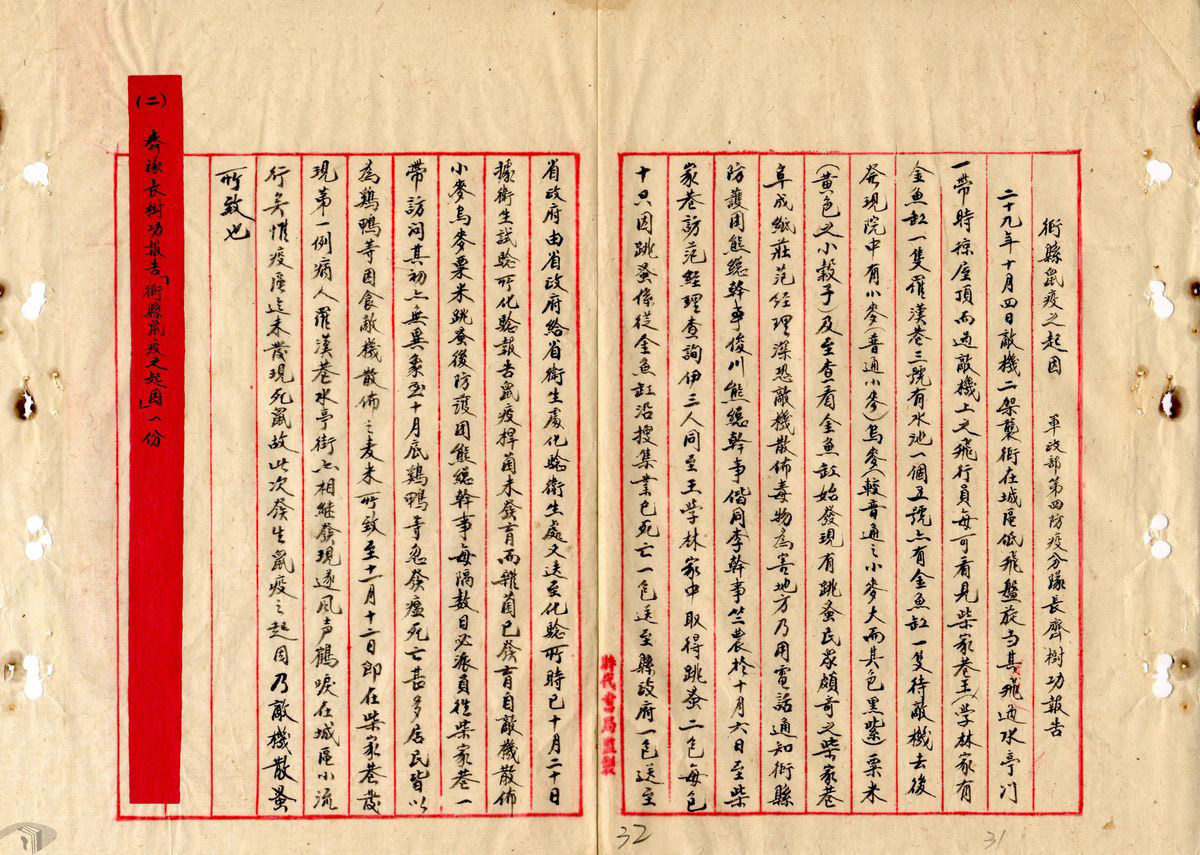 衢縣鼠疫之起因　　軍政部第四防疫分隊長齊樹功報告
二十九年十月四日敵機二架襲衢在城區低飛盤旋當其飛過水亭門
一帶時掠屋頂而過敵機上之飛行員每可看見柴家巷王學林家有
金魚缸一隻羅漢巷三號有水池一個五號亦有金魚缸一隻待敵機去後
發現院中有小麥(普通小麥)烏麥(較普通之小麥大而其色黑紫)粟米
(黃色之小穀子)及至查看金魚缸始發現有跳蚤民眾頗奇之柴家巷
阜成紙莊范經理深恐敵機散佈毒物為害地方乃用電話通知衢縣
防護團熊總幹事俊川熊總幹事偕同李幹事竺農於十月六日至柴
家巷訪范經理查詢伊三人同至王學林家中取得跳蚤二包每包
十只因跳蚤係從金魚缸沿搜集業已死亡一包送至縣政府一包送至
省政府由省政府給省衛生處化驗衛生處又送至化驗所時已十月二十日
據衛生試驗所化驗報告鼠疫捍菌未發育而雜菌已發育自敵機散佈
小麥烏麥粟米跳蚤後防護團熊總幹事每隔數日必派員往柴家巷一
帶訪問其初亦無異象至十月底鷄鴨等忽發瘟死亡甚多居民皆以
為鷄鴨等因食敵機散佈之麦米所致至十一月十二日即在柴家巷發
現第一例病人羅漢巷水亭街亦相継發現遂風声鶴唳在城區小流
行矣惟疫區迄未發現死鼠故此次發生鼠疫之起因乃敵機散蚤
所致也
(二)　齊隊長樹功報告「衢縣鼠疫之起因」一份
時代書局監製
32
31